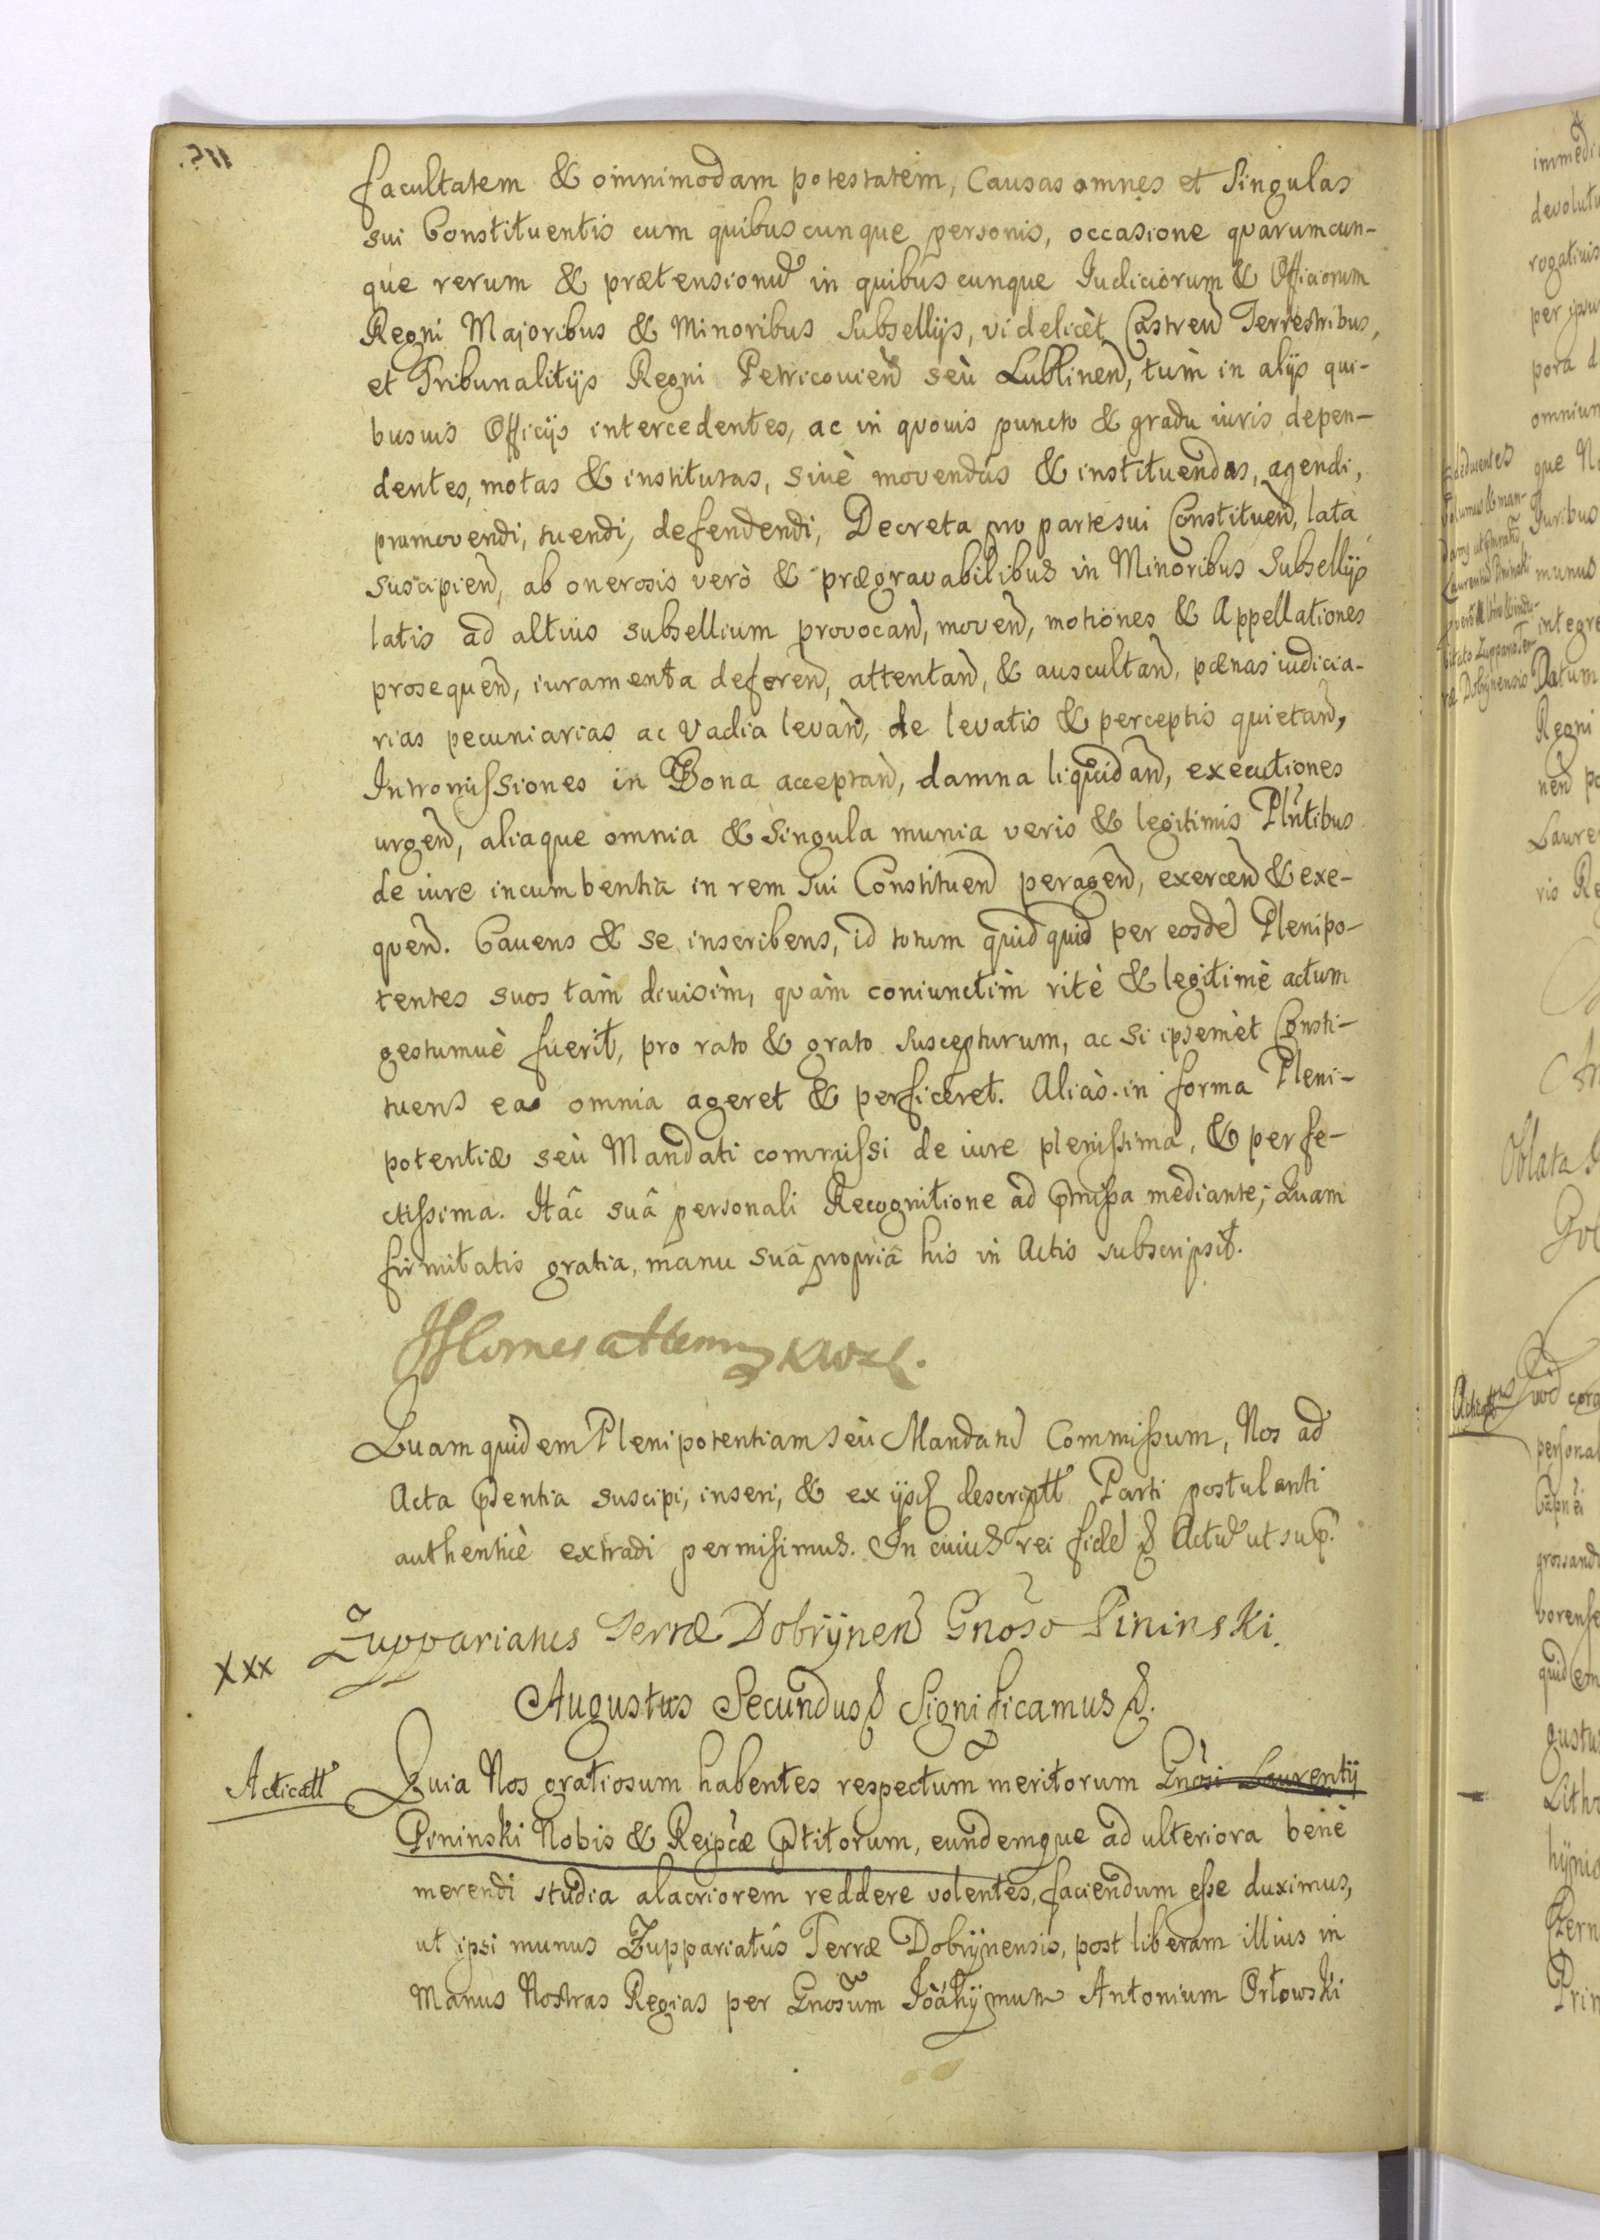 facultatem & omnimodam potestatem, Causas omnes et Singulas
sui Constituentis cum quibuscunque personis, occasione quarumcun-
que rerum & prætensionũ in quibuscunque Iudiciorum & Officiorum
Regni Majoribus & Minoribus Subsellijs, videlicèt Castren Terrestribus,
et Tribunalitijs Regni Petricouien seù Lublinen, tùm in alijs qui-
busuis Officijs intercedentes, ac in quouis puncto & gradu iuris depen-
dentes, motas & institutas, siuè movendas & instituendas, agendi,
promovendi, tuendi, defendendi, Decreta pro parte sui Constituen, lata
suscipien, ab onerosis verò & prægravabilibus in Minoribus Subsellijs
latis ad altius subsellium provocan, moven, motiones & Appellationes
prosequen, iuramenta deferen, attentan, & auscultan, pænas iudicia-
rias pecuniarias ac Vadia levan, de levatis & perceptis quietan,
Intromissiones in Bona acceptan, damna liquidan, executiones
urgen, aliaque omnia & Singula munia veris & legitimis Plntibus
de iure incumbentia in rem sui Constituen peragen, exercen & exe-
quen. Cauens & se inscribens, id totum quidquid per eosdẽ Plenipo-
tentes suos tàm diuisìm, quàm coniunctìm ritè & legitimè actum
gestumuè fuerit, pro rato & grato suscepturum, ac si ipsemèt Consti-
tuens ea omnia ageret & perficeret. Aliàs in forma Pleni-
potentiæ seù Mandati commissi de iure plenissima, & perfe-
ctissima. Hâc suâ personali Recognitione ad pmissa mediante; Quam
firmitatis gratia, manu suâ propriâ his in Actis subscripsit.
Quam quidem Plenipotentiam seù Mandatũ Commissum, Nos ad
Acta pñtentia suscipi, inseri, & ex ijsd descriptt Parti postulanti
authenticè extradi permisimus. In cuius rei fidẽ & Actũ ut sup.
Zuppariatus Terræ Dobrÿnen Gnoso Pininski.
xxx
Augustus Secundus & Significamus &.
Acticatt
Quia Nos gratiosum habentes respectum meritorum Gnosi Laurentÿ
Pininski Nobis & Reipcæ pstitorum, eundemque ad ulteriora benè
merendi studia alacriorem reddere volentes, faciendum esse duximus,
ut ipsi munus Zuppariatûs Terræ Dobrÿnensis, post liberam illius in
Manus Nostras Regias per Gnosum Ioahÿmum Antonium Orłowski